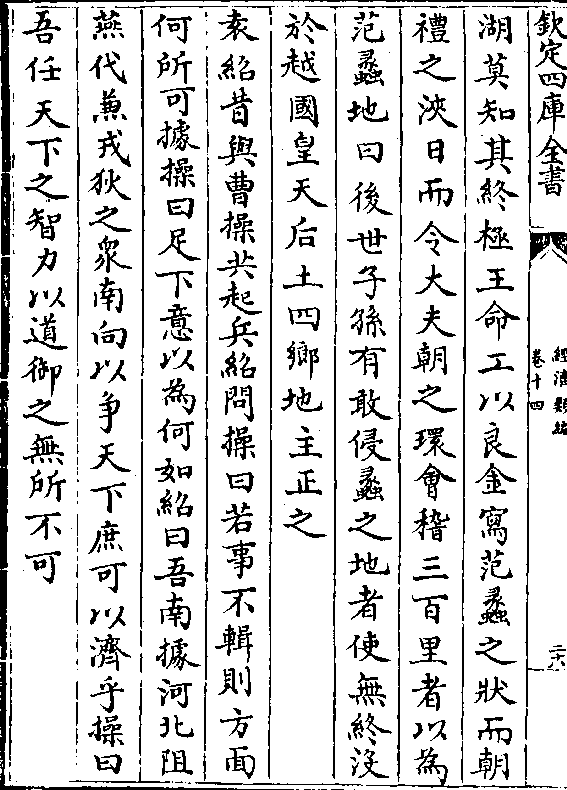 欽定四庫全書
經濟類編
卷十四
二十八
湖莫知其終極王命工以良金寫范蠡之狀而朝
禮之浹日而令大夫朝之環會稽三百里者以為
范蠡地曰後世子孫有敢侵蠡之地者使無終沒
於越國皇天后土四鄉地主正之
袁紹昔與曹操共起兵紹問操曰若事不輯則方面
何所可據操曰足下意以為何如紹曰吾南據河北阻
燕代兼戎狄之衆南向以争天下庶可以濟乎操曰
吾任天下之智力以道御之無所不可